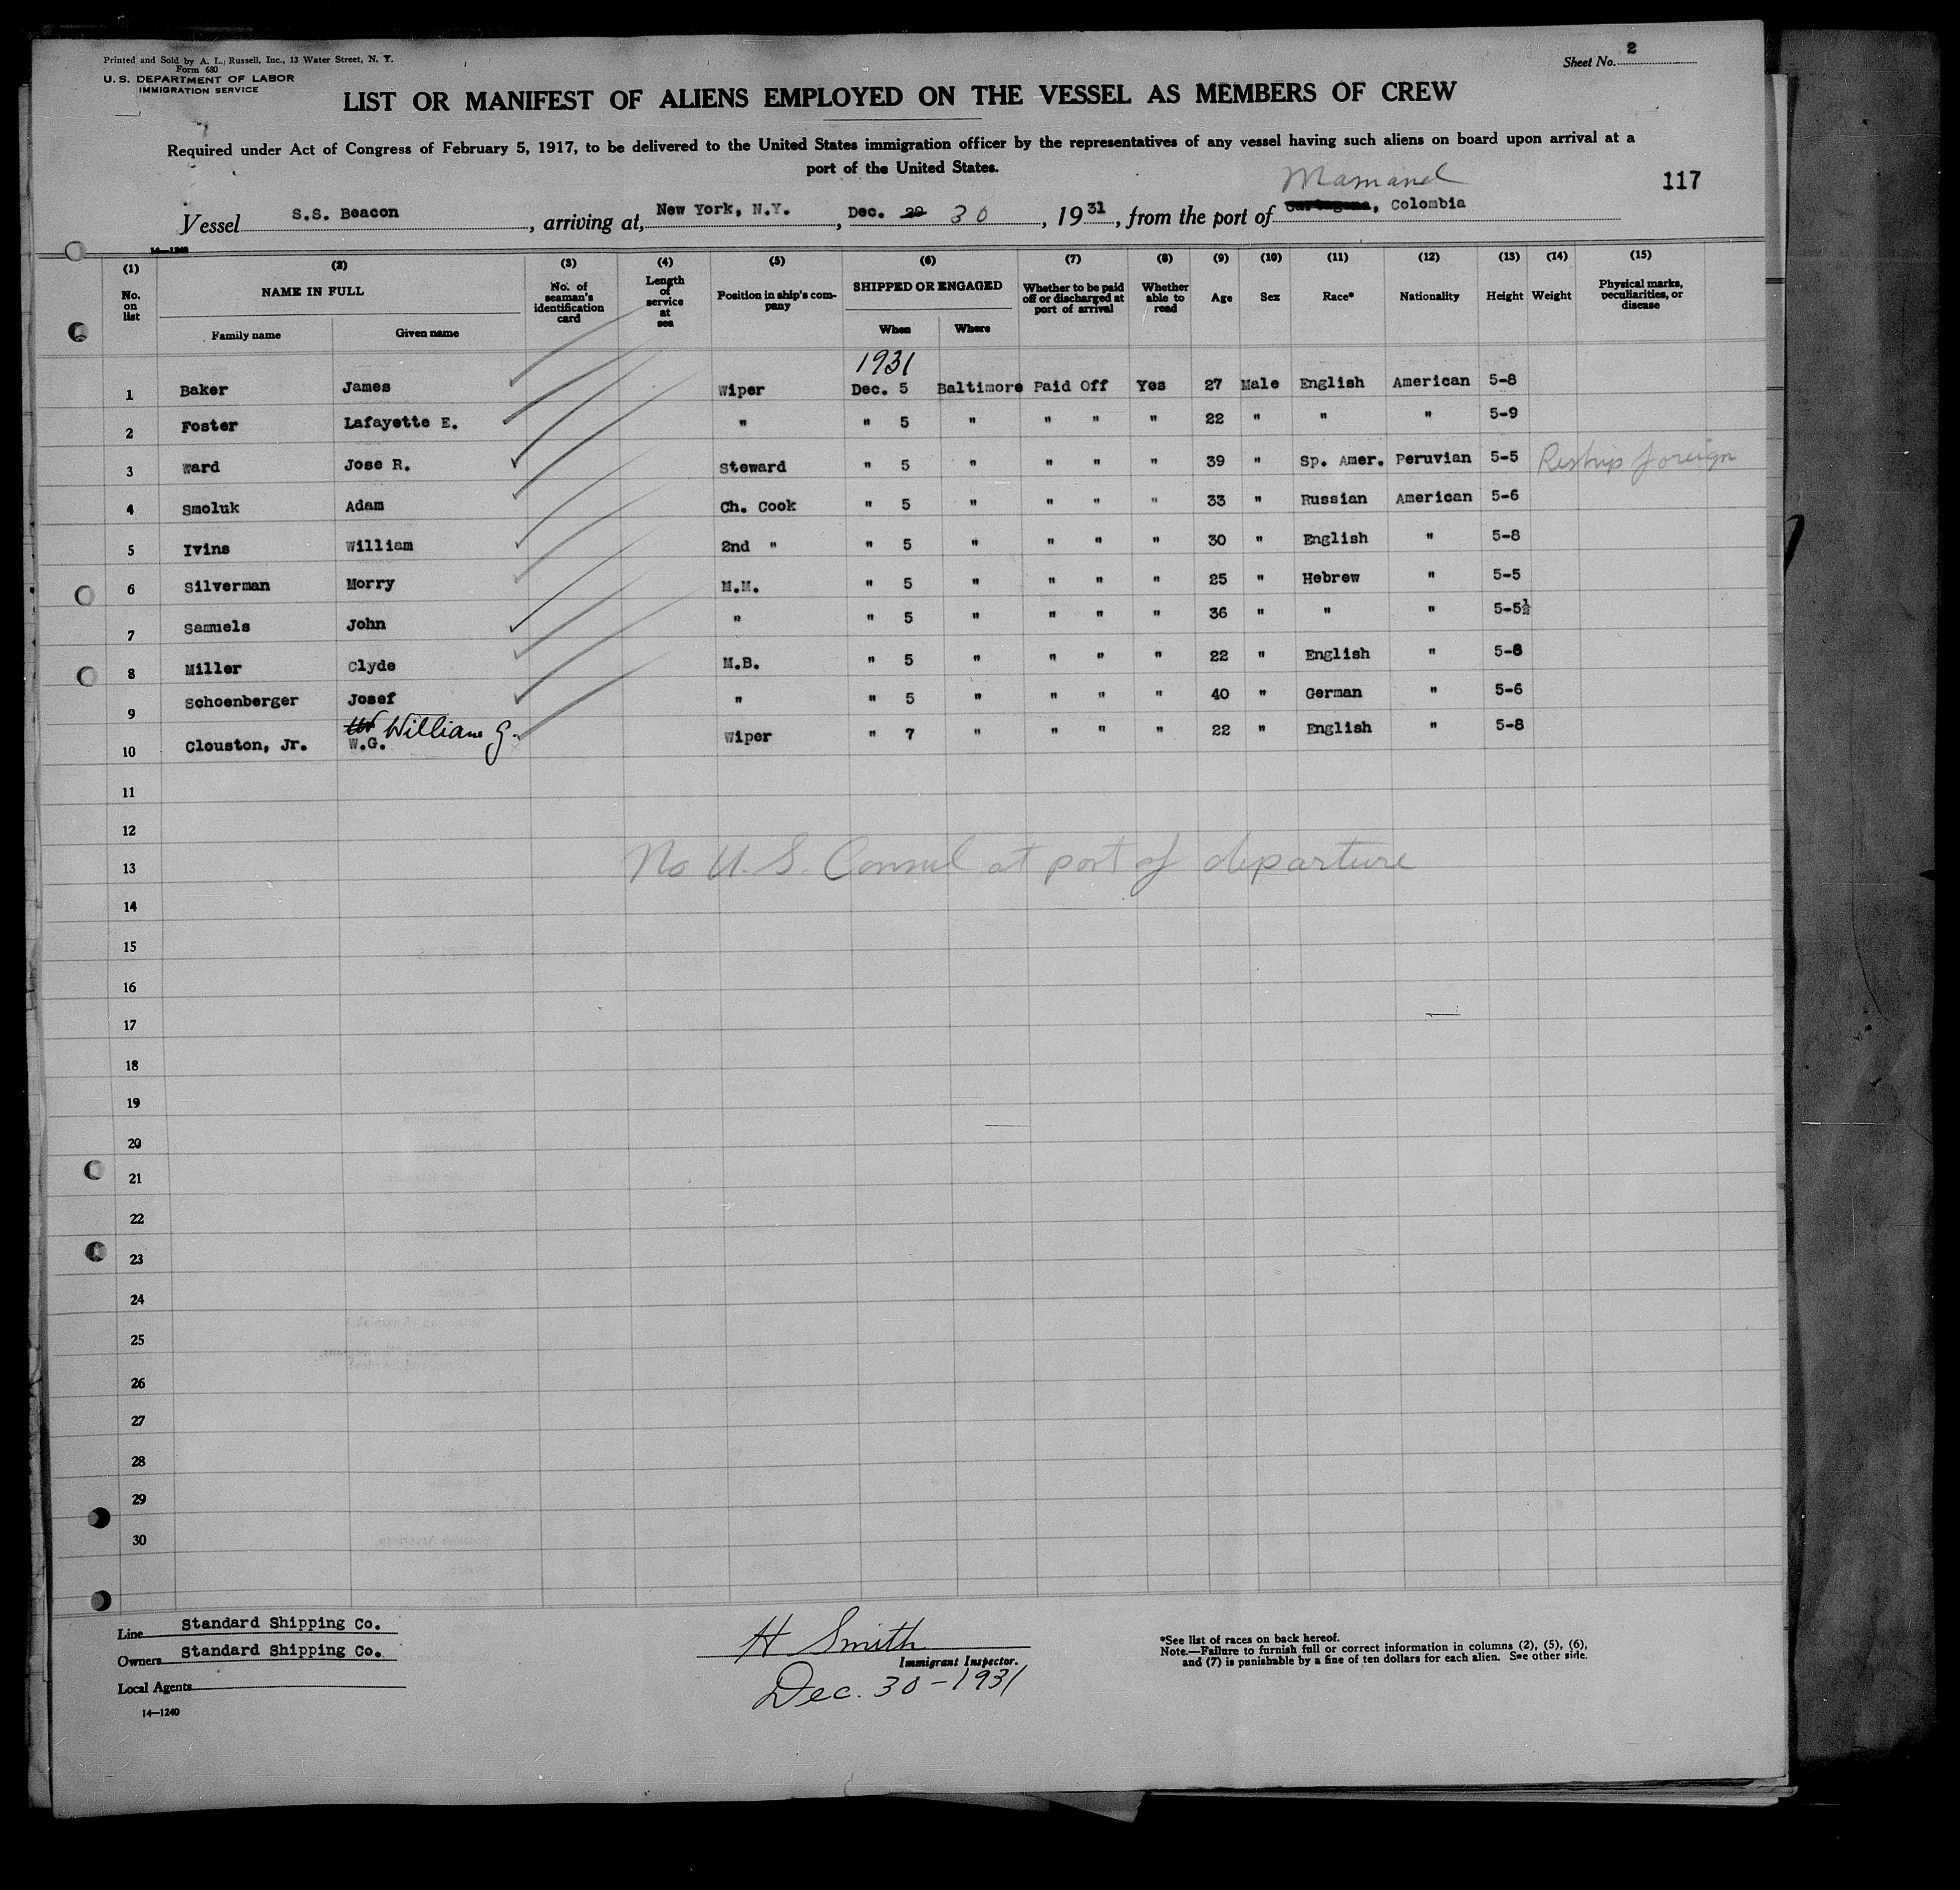 Printed and Sold by A. L. Russell, Inc., 13 Water Street, N. Y.
Form 680
U. S. DEPARTMENT OF LABOR
IMMIGRATION SERVICE
Sheet No. 2
LIST OR MANIFEST OF ALIENS EMPLOYED ON THE VESSEL AS MEMBERS OF CREW
Required under Act of Congress of February 5, 1917, to be delivered to the United States immigration officer by the representatives of any vessel having such aliens on board upon arrival at a
port of the United States.
117
Mamanel
Vessel S.S. Beacon, arriving at, New York, N.Y., Dec. 29 30, 1931, from the port of Cartagena, Colombia
14—1240
(1) (2) (3) (4) (5) (6) (7) (8) (9) (10) (11) (12) (13) (14) (15)
No. on list NAME IN FULL No. of seaman's identification card Length of service at sea Position in ship's company SHIPPED OR ENGAGED Whether to be paid off or discharged at port of arrival Whether able to read Age Sex Race* Nationality Height Weight Physical marks, peculiarities, or disease
Family name Given name When Where
1931
1 Baker James Wiper Dec. 5 Baltimore Paid Off Yes 27 Male English American 5-8
2 Foster Lafayette E. " " 5 " " " " 22 " " " 5-9
3 Ward Jose R. Steward " 5 " " " " 39 " Sp. Amer. Peruvian 5-5 Reship foreign
4 Smoluk Adam Ch. Cook " 5 " " " " 33 " Russian American 5-6
5 Ivins William 2nd " " 5 " " " " 30 " English " 5-8
6 Silverman Morry M.M. " 5 " " " " 25 " Hebrew " 5-5
7 Samuels John " " 5 " " " " 36 " " " 5-5½
8 Miller Clyde M.B. " 5 " " " " 22 " English " 5-8
9 Schoenberger Josef " " 5 " " " " 40 " German " 5-6
William G.
10 Clouston, Jr. W.G. Wiper " 7 " " " " 22 " English " 5-8
11
12
13 No U.S. Consul at port of departure
14
15
16
17
18
19
20
21
22
23
24
25
26
27
28
29
30
Line Standard Shipping Co.
Owners Standard Shipping Co.
Local Agents
14—1240
H Smith
Immigrant Inspector.
Dec. 30-1931
*See list of races on back hereof.
Note.—Failure to furnish full or correct information in columns (2), (5), (6),
and (7) is punishable by a fine of ten dollars for each alien. See other side.